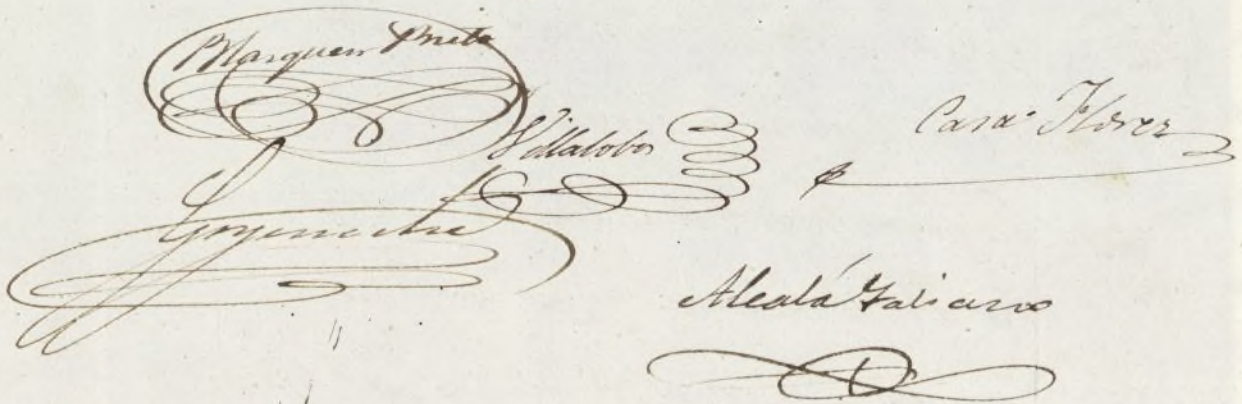 Marquez Prieto
Villalobos
Casa Florez
Goyeneche
Alcalá Galiano